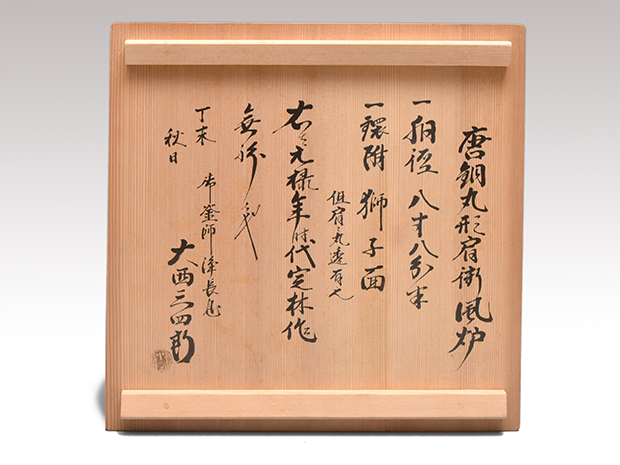 唐銅丸形肩衝風炉
一胴径 八寸八分半
一鐶附 獅子面
但肩ニ丸透有之
右ハ元禄年時代定林作
無疑
丁未
秋日
釜師浄長
大西三四郎